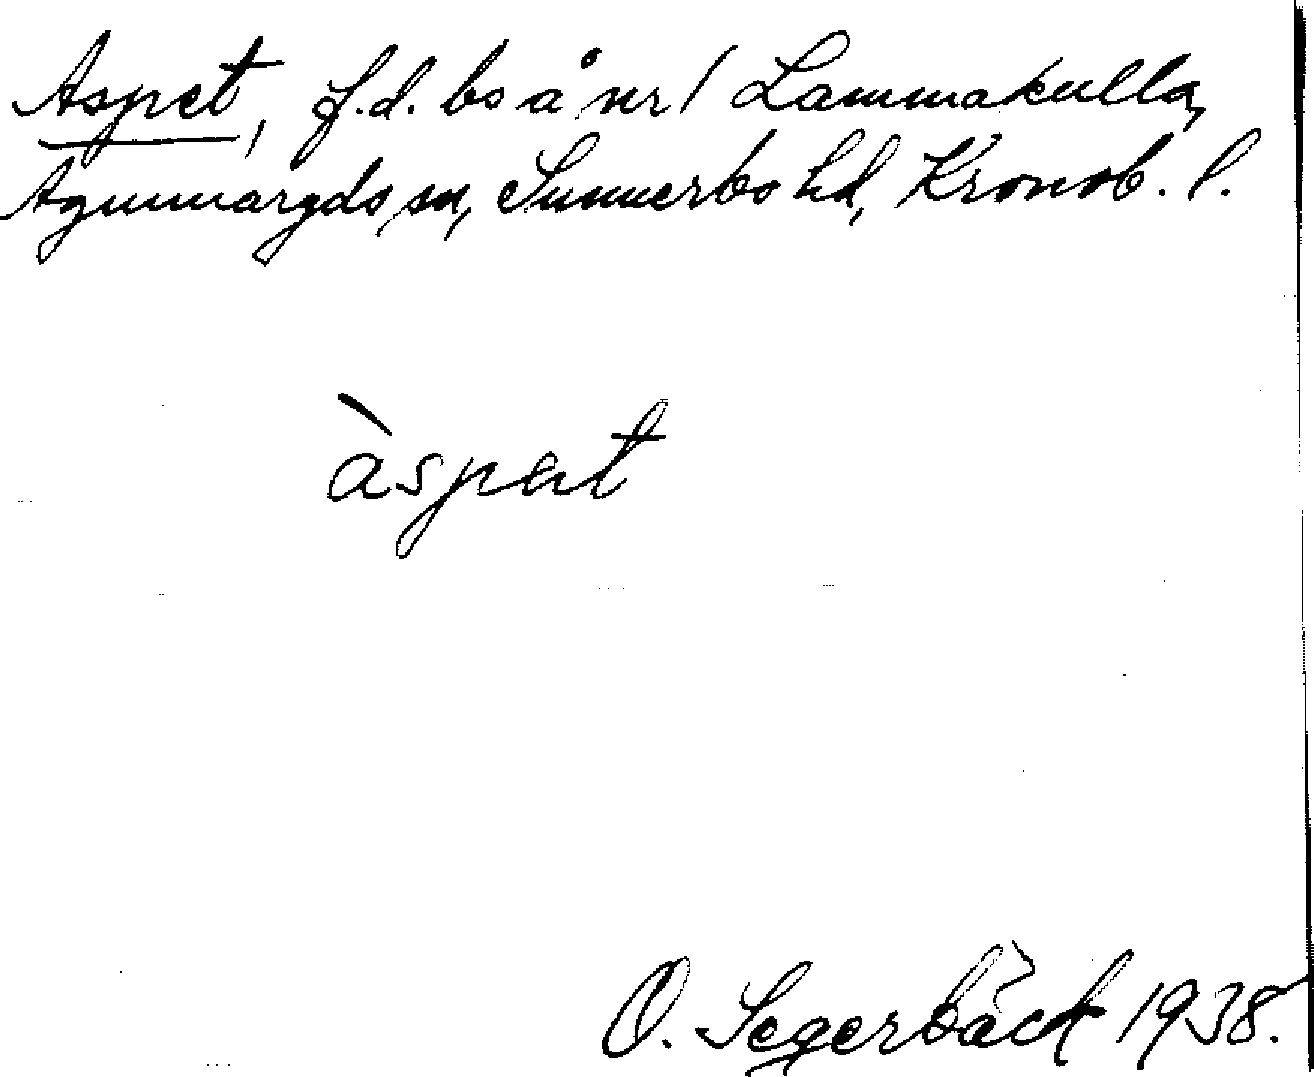 Aspet, f.d. bs å nr 1 Lammakulla,
Agunnaryds sn, Sunnerbo hd, Kronob. l.
àspət
O. Segerbäck 1938.